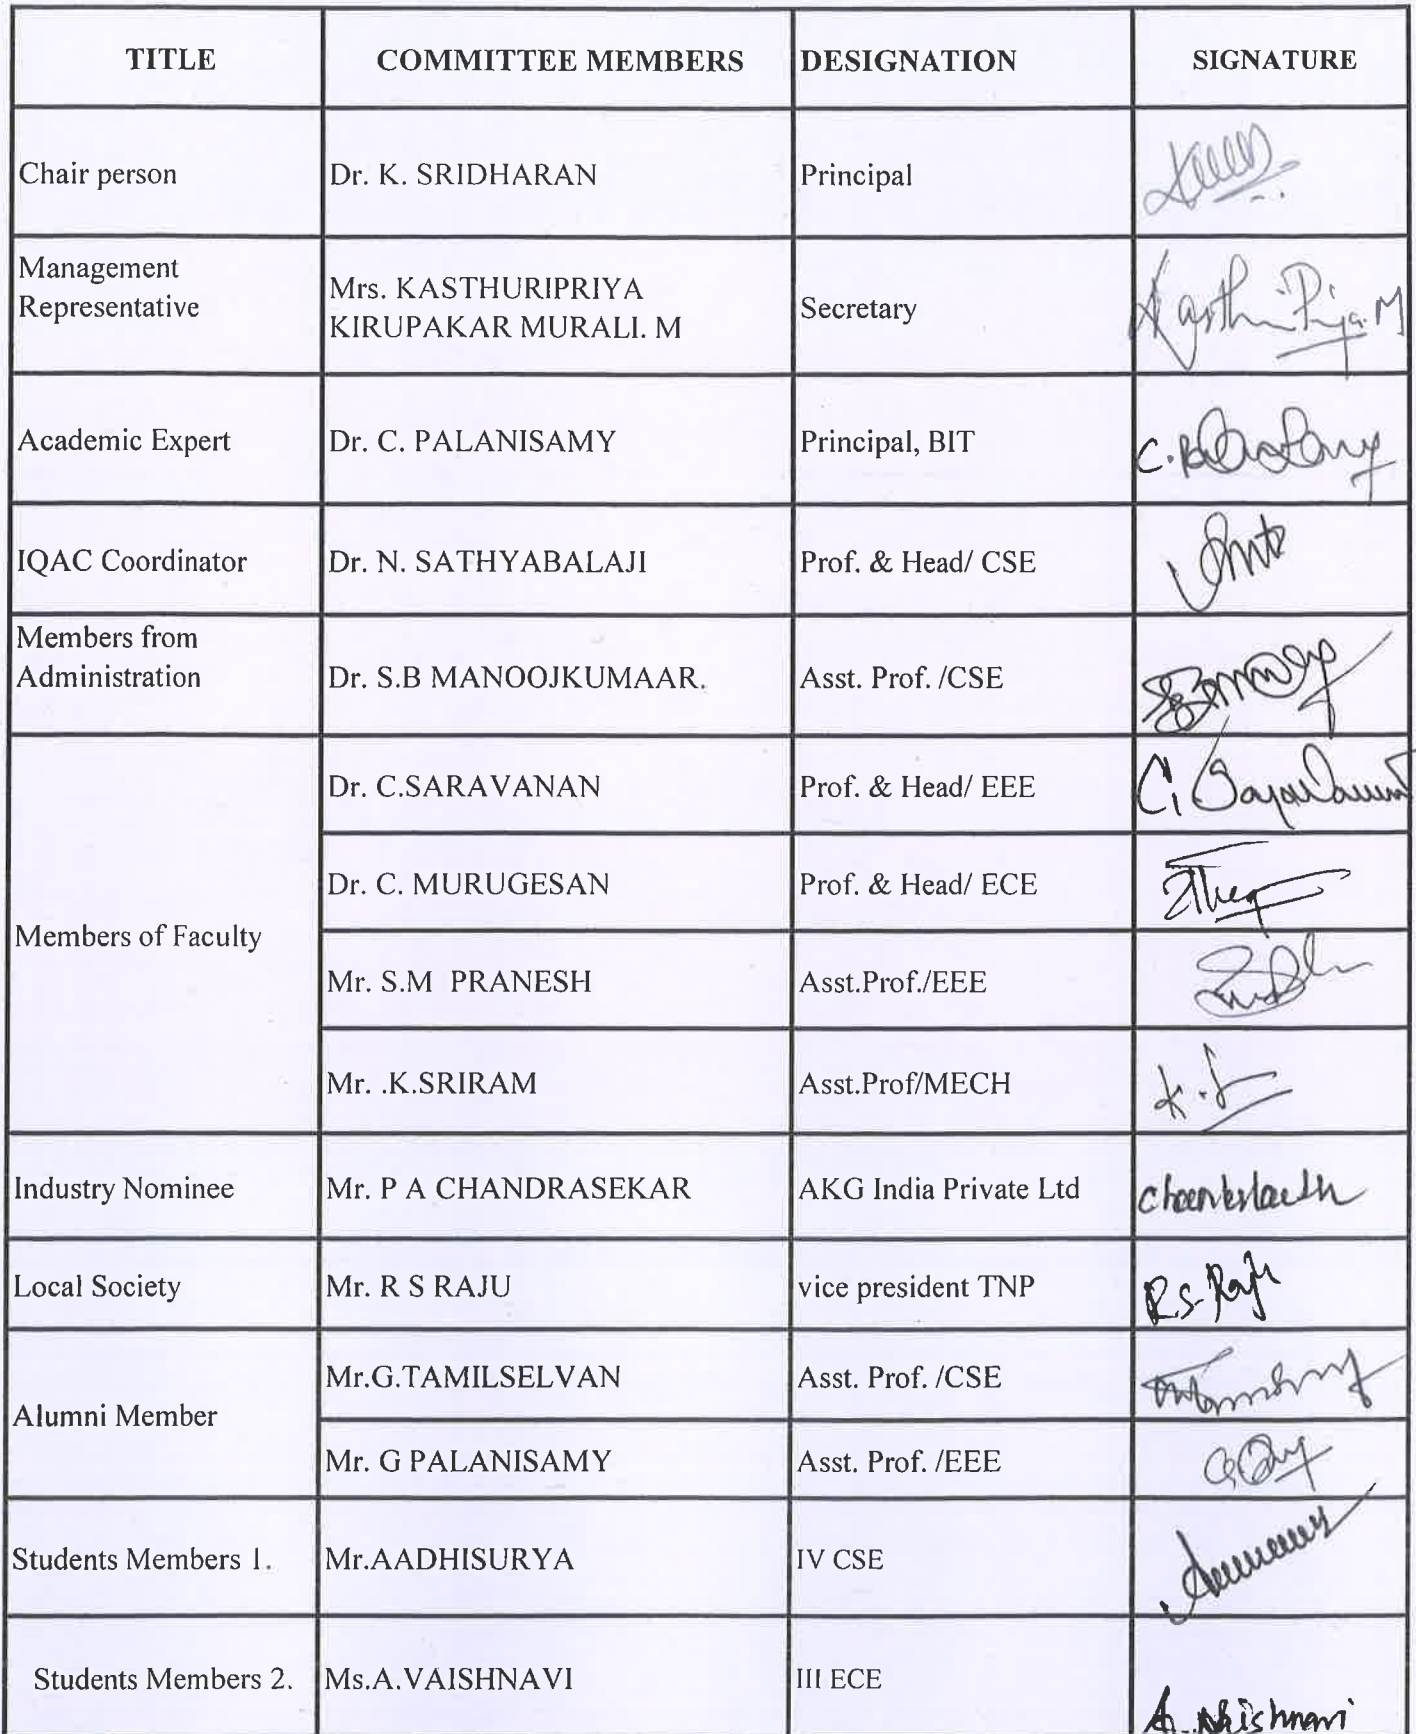 TITLE COMMITTEE MEMBERS DESIGNATION SIGNATURE
Chair person Dr. K. SRIDHARAN Principal
Management
Representative
Mrs. KASTHURIPRIYA
KIRUPAKAR MURALI. M
Secretary
Academic Expert Dr. C. PALANISAMY Principal, BIT
IQAC Coordinator Dr. N. SATHYABALAJI Prof. & Head/ CSE
Members from
Administration
Dr. S.B MANOOJKUMAAR. Asst. Prof. /CSE
Members of Faculty
Dr. C.SARAVANAN Prof. & Head/ EEE
Dr. C. MURUGESAN Prof. & Head/ ECE
Mr. S.M PRANESH Asst.Prof./EEE
Mr. .K.SRIRAM Asst.Prof/MECH
Industry Nominee Mr. P A CHANDRASEKAR AKG India Private Ltd
Local Society Mr. R S RAJU vice president TNP R.S. Raju
Alumni Member
Mr.G.TAMILSELVAN Asst. Prof. /CSE
Mr. G PALANISAMY Asst. Prof. /EEE
Students Members 1. Mr.AADHISURYA IV CSE
Students Members 2. Ms.A.VAISHNAVI III ECE